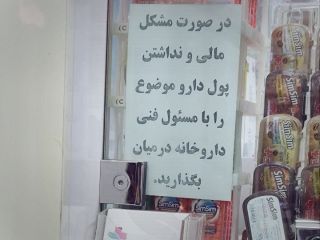 در صورت مشکل
مالی و نداشتن
پول دارو موضوع
را با مسئول فنی
داروخانه درمیان
بگذارید.
SimSim
SimSim
SimSim
SimSim